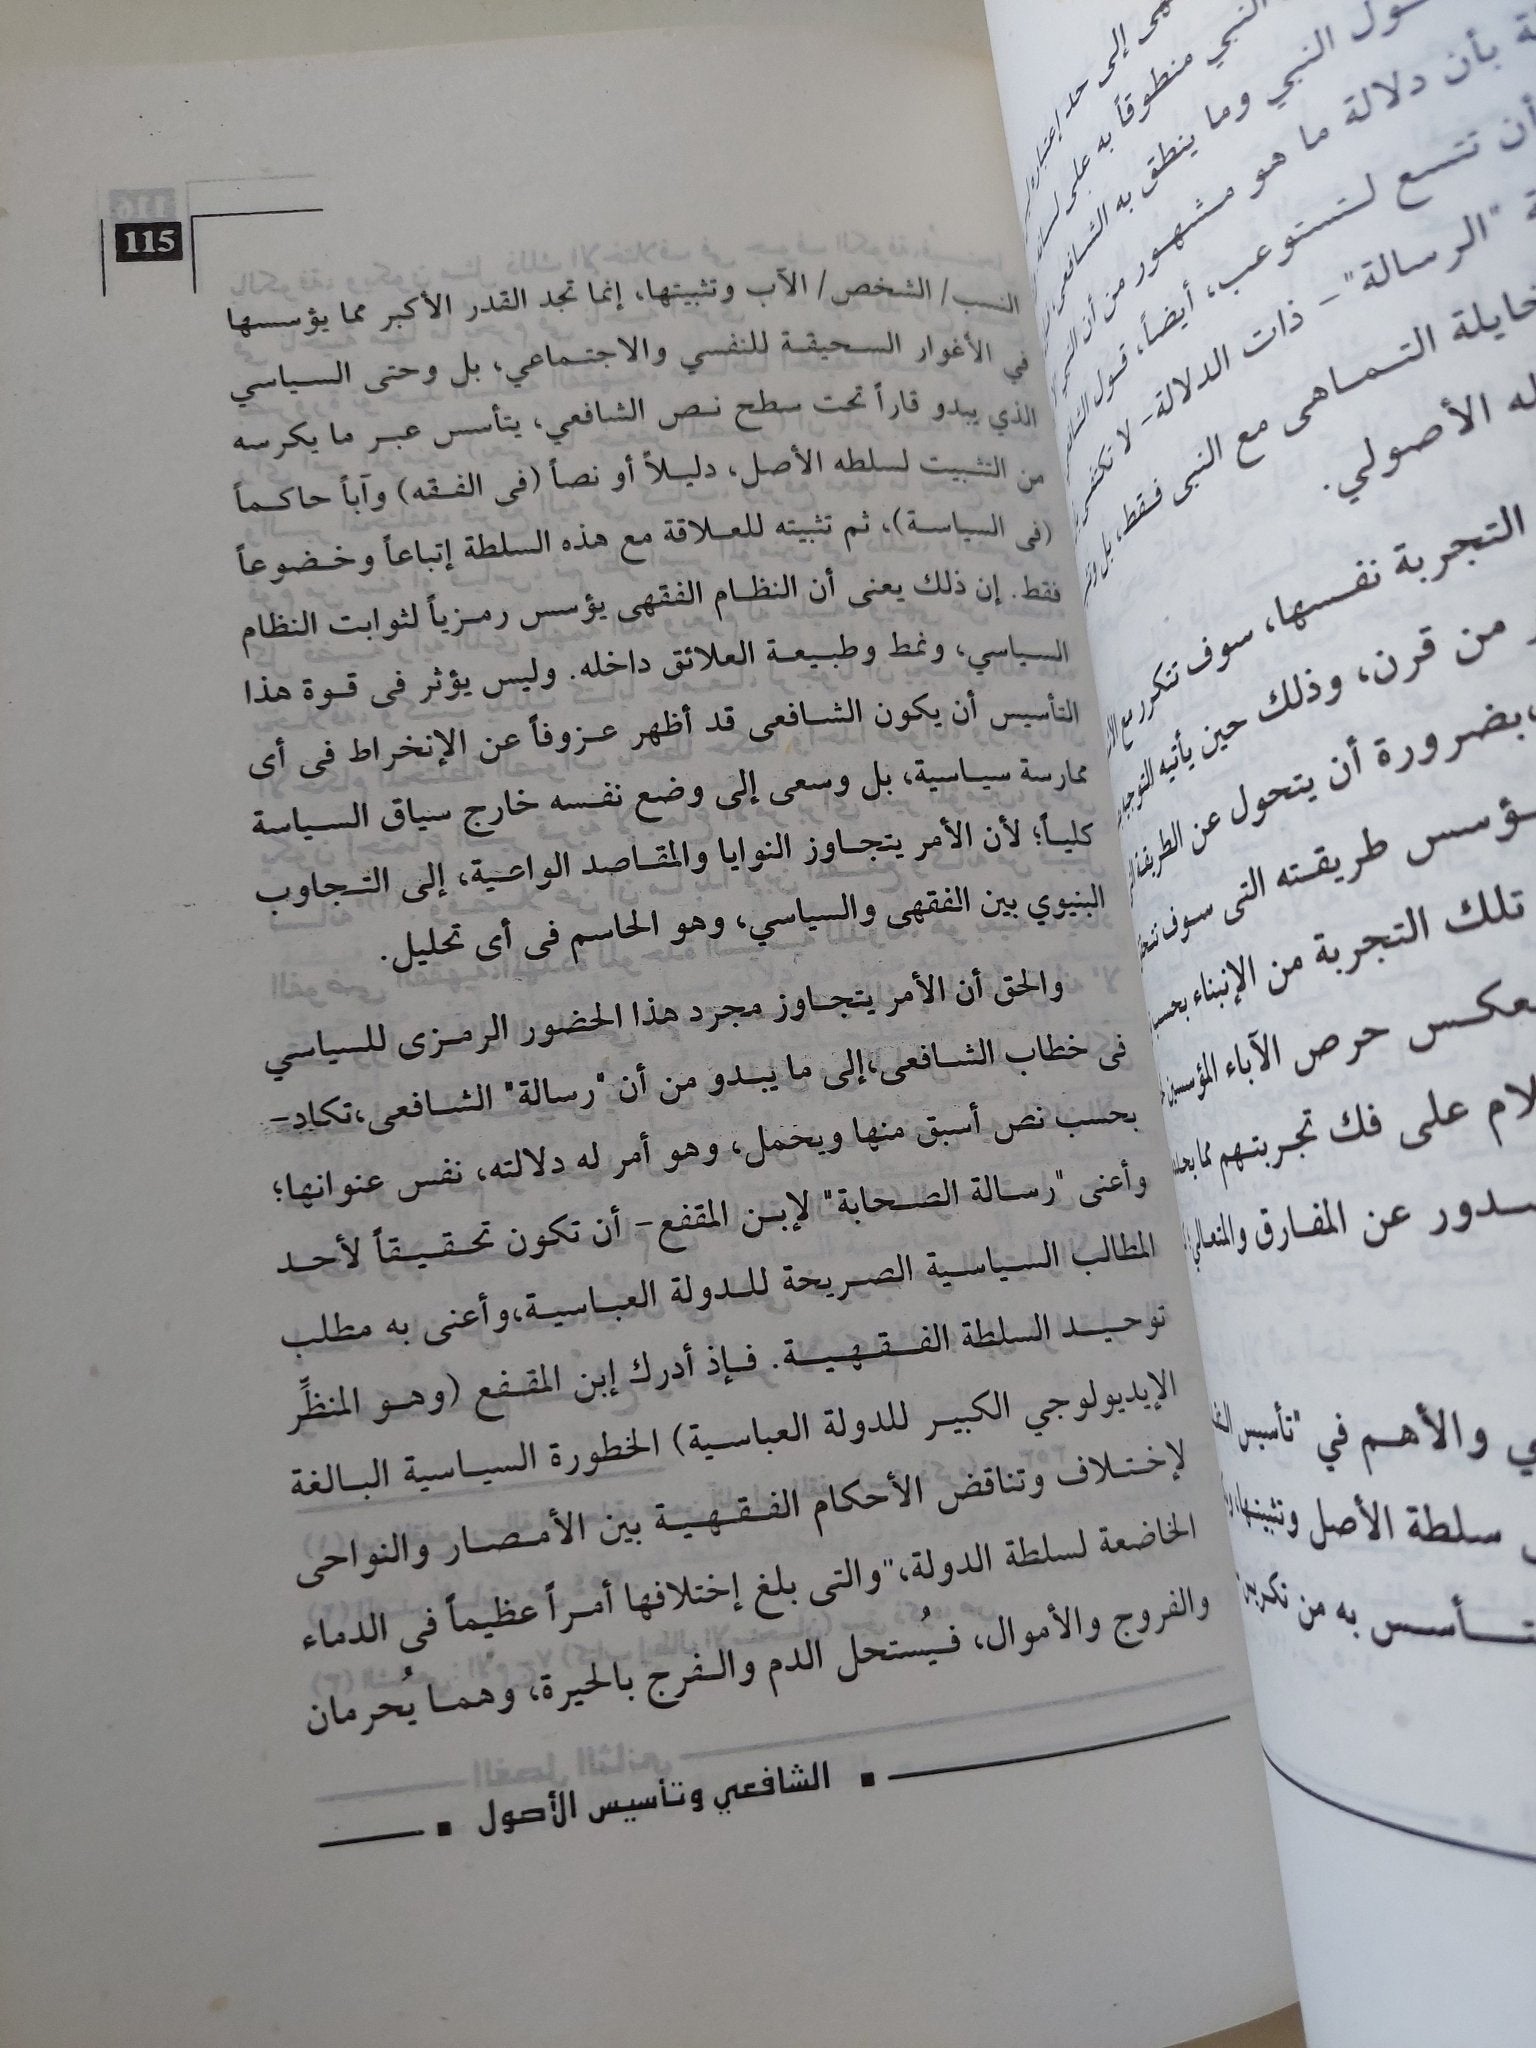 115
النسب/ الشخص/ الآب وتثبيتها، إنما تجد القدر الأكبر مما يؤسسها
في الأغوار السحيقة للنفسي والاجتماعي، بل وحتى السياسي
الذي يبدو قاراً تحت سطح نص الشافعي، يتأسس عبر ما يكرسه
من التثبيت لسلطه الأصل، دليلاً أو نصاً (فى الفقه) وآباً حاكماً
(فى السياسة)، ثم تثبيته للعلاقة مع هذه السلطة إتباعاً وخضوعاً
فقط. إن ذلك يعنى أن النظام الفقهى يؤسس رمزياً لثوابت النظام
السياسي، ونمط وطبيعة العلائق داخله. وليس يؤثر فى قوة هذا
التأسيس أن يكون الشافعى قد أظهر عزوفاً عن الإنخراط فى أى
ممارسة سياسية، بل وسعى إلى وضع نفسه خارج سياق السياسة
كلياً؛ لأن الأمر يتجاوز النوايا والمقاصد الواعية، إلى التجاوب
البنيوي بين الفقهى والسياسي، وهو الحاسم فى أى تحليل.
والحق أن الأمر يتجاوز مجرد هذا الحضور الرمزى للسياسي
فى خطاب الشافعى،إلى ما يبدو من أن "رسالة" الشافعى،تكاد-
بحسب نص أسبق منها ويحمل، وهو أمر له دلالته، نفس عنوانها؛
وأعنى "رسالة الصحابة" لإبن المقفع- أن تكون تحقيقاً لأحد
المطالب السياسية الصريحة للدولة العباسية،وأعنى به مطلب
توحيد السلطة الفقهية. فإذ أدرك إبن المقفع (وهو المنظِّر
الإيديولوجي الكبير للدولة العباسية) الخطورة السياسية البالغة
لإختلاف وتناقض الأحكام الفقهية بين الأمصار والنواحى
الخاضعة لسلطة الدولة،"والتى بلغ إختلافها أمراً عظيماً فى الدماء
والفروج والأموال، فيُستحل الدم والفرج بالحيرة، وهما يُحرمان
الشافعي وتأسيس الأصول
النبي منطوقاً به على
ول النبي وما ينطق به الشافعى
بأن دلالة ما هو مشهور من أن النبي
أن تتسع لتستوعب، أيضاً، قول
"الرسالة"- ذات الدلالة- لا تكتفى
خايلة التماهى مع النبى فقط، بل
له الأصولي.
التجربة نفسها، سوف تتكرر مع
من قرن، وذلك حين يأتيه
بضرورة أن يتحول عن الطريقة
ؤسس طريقته التى سوف
تلك التجربة من الإنبناء بحسب
عكس حرص الآباء المؤسسين
لام على فك تجربتهم مما
دور عن المفارق والمتعالي
ي والأهم في "تأسيس
سلطة الأصل وتثبيتها،
تأسس به من تكريس